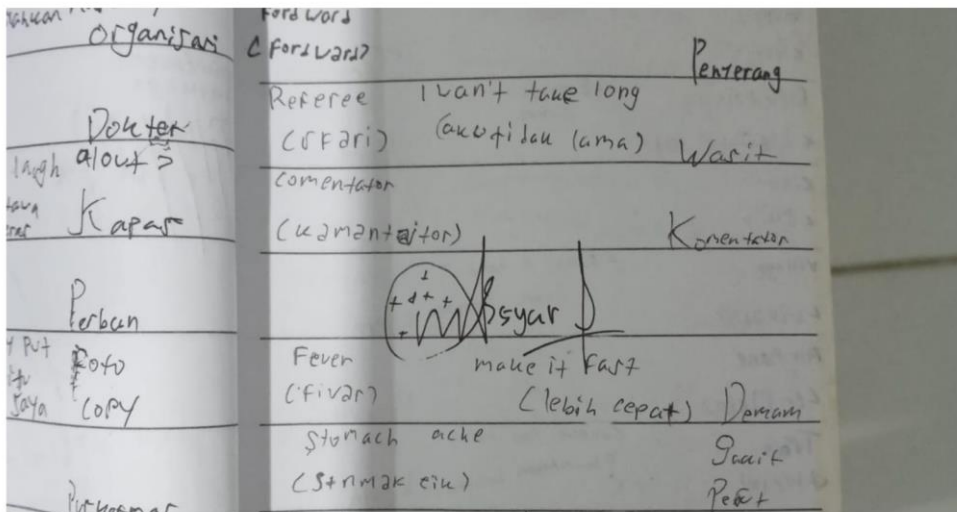 organisasi
Dokter
laugh alout >
Kapas
Perban
Put Foto
saya copy
Ford word
(Fordward) Penyerang
Referee I wan't take long
(rFari) (aku tidak lama) Wasit
Comentator
(kamantaitor) Komentator
Absyar D
Fever make it Fast
(fivar) (lebih cepat) Demam
Stomach ache Sakit
(Stomak eik) Perut